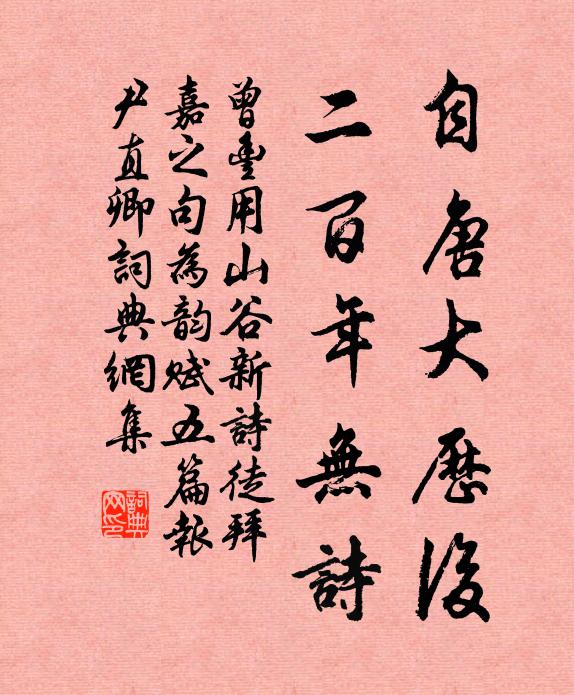 自唐大歷後
二百年無詩
曾豐用山谷新詩徒拜
嘉之句為韵賦五篇報
尹直卿詞典網集
詞典网印